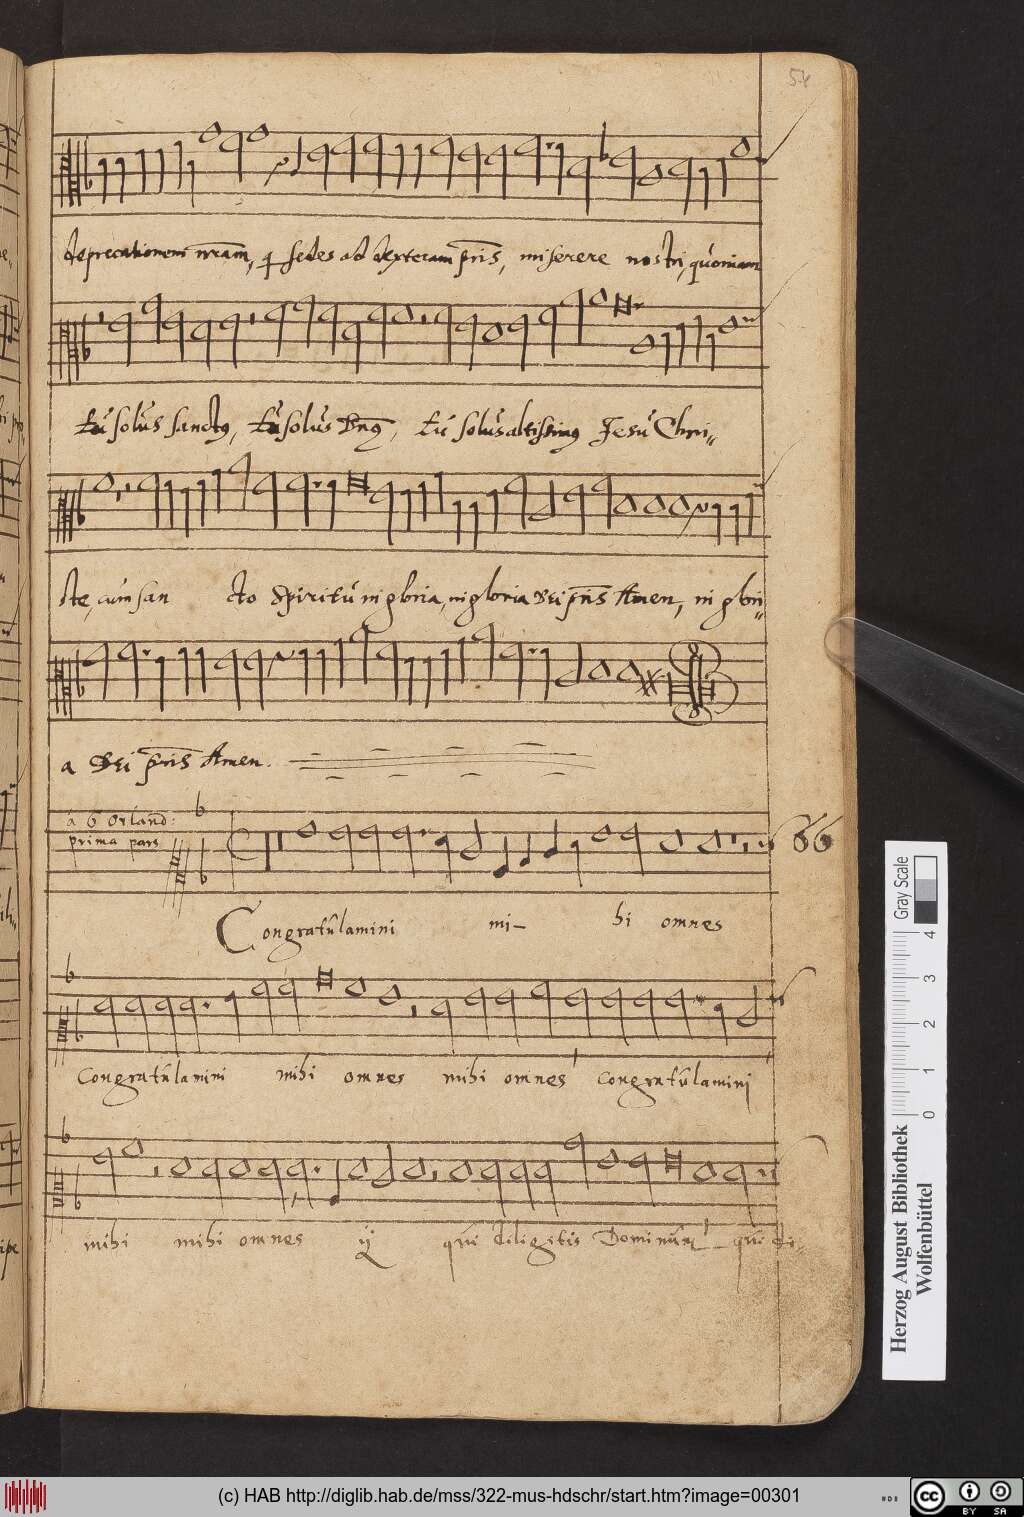 54
deprecationem nr̄am, q sedes ad dexteram pr̄is, miserere nostri, quoniam
tu solus sanctus, tu solus Dn̄s, tu solus altissimus Jesu Chri„
ste, cum san cto spiritu in gloria, in gloria Dei pr̄is Amen, in glori„
a Dei pr̄is Amen.
a 6 Orland:
prima pars
66
Congratulamini mi– hi omnes
Congratulamini mihi omnes mihi omnes congratulamini
mihi mihi omnes ij qui diligitis Dominum qui di„
Gray Scale
0 1 2 3 4
Herzog August Bibliothek
Wolfenbüttel
(c) HAB http://diglib.hab.de/mss/322-mus-hdschr/start.htm?image=00301
cc BY SA